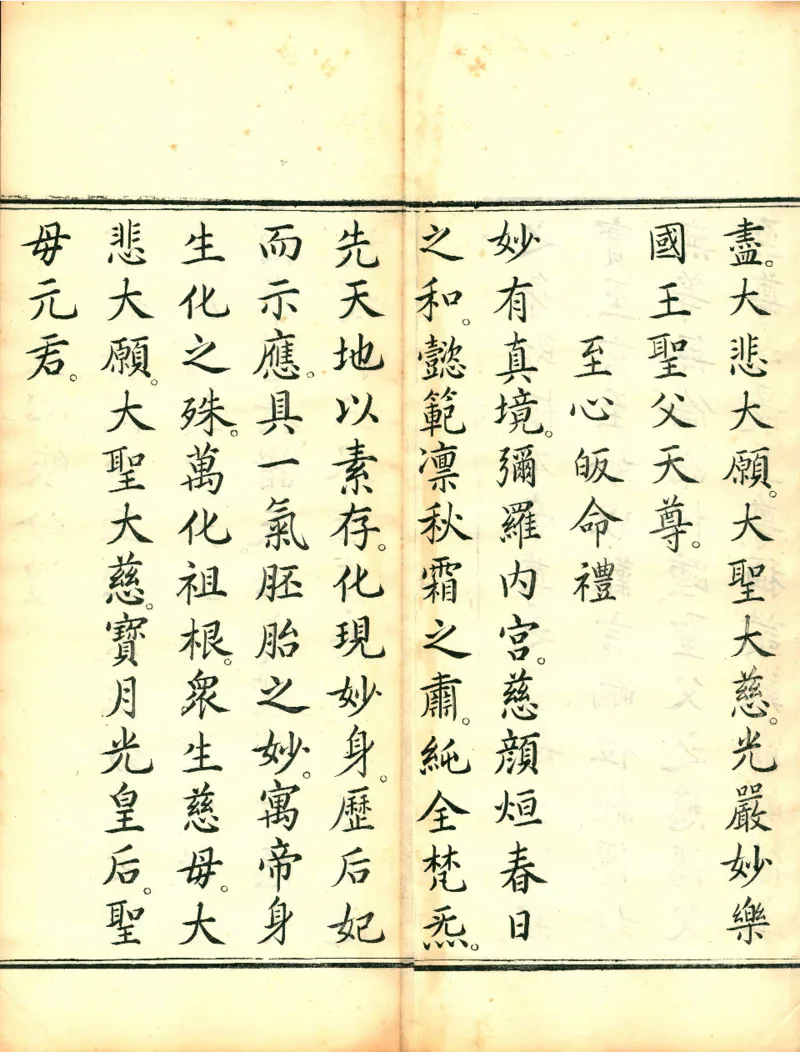 盡。大悲大願。大聖大慈。光嚴妙樂
國王聖父天尊。
至心皈命禮
妙有真境。彌羅内宮。慈顔烜春日
之和。懿範凛秋霜之肅。純全梵炁。
先天地以素存。化現妙身。歷后妃
而示應。具一氣胚胎之妙。寓帝身
生化之殊。萬化祖根。衆生慈母。大
悲大願。大聖大慈。寶月光皇后。聖
母元君。